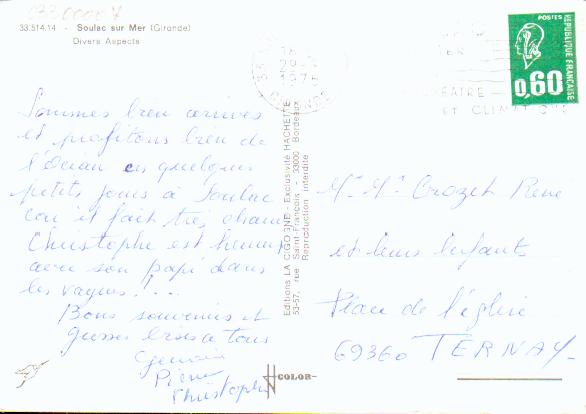 0330000
33.514.14 - Soulac sur Mer (Gironde)
Divers Aspects
1976
GIRONDE
ET CLIMATIQUE
POSTES
REPUBLIQUE FRANCAISE
0,60
Sommes bien arrivés
et profitons bien de
l'Océan en quelques
petits jours à Soulac
car il fait très chaud
Christophe est heureux
avec son papi dans
les vagues! ...
Bons souvenirs et
grosses bises à tous
Pierre
Christophe
Editions LA CIGOGNE - Exclusivité HACHETTE
53-57, rue Saint-François - 33000 Bordeaux
Reproduction interdite
COLOR
Mr Me Crozet René
et leurs Enfants
Place de l'église
69360 TERNAY